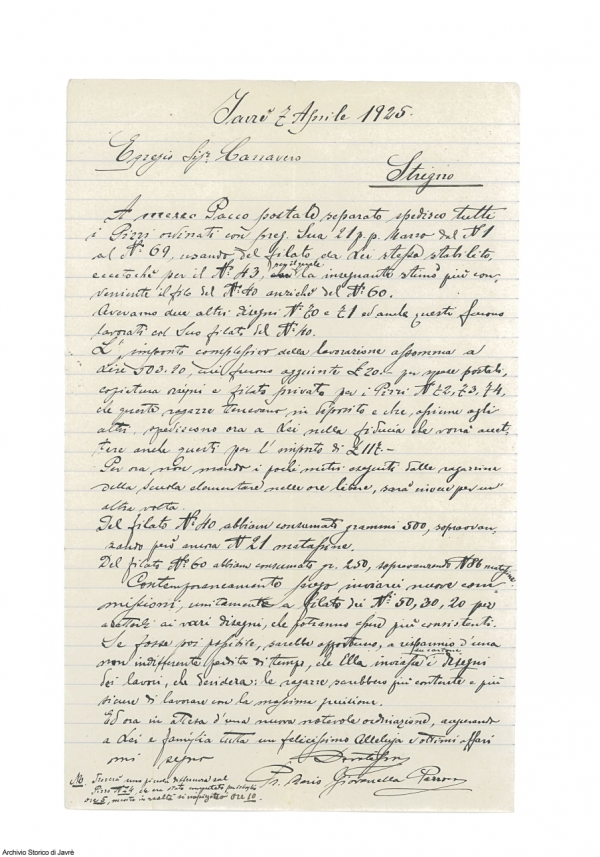 Javrè 7 Aprile 1925.
Egregio Sigr. Carraro
Strigno
A mezzo Pacco postale separato spedisco tutti
i Pizzi ordinati con preg. Sua 21 p.p. Marzo dal N. 1
al N.º 69, usando del filato da Lei stesso stabilito,
eccetochè per il N.º 43, pel quale la insegnante stimò più con
veniente il filo del N.º 40 anzichè del N.º 60.
Avevamo due altri disegni N.º 70 e 71 ed anche questi furono
lavorati col Suo filato del N.º 40.
L'importo complessivo della lavorazione assomma a
Lire 503.20, cui furono aggiunte £ 20.- per spese postali,
copiatura disegni e filato privato per i Pizzi N. 72, 73, 74,
che queste ragazze tenevano in deposito e che, assieme agli
altri, spediscono ora a Lei nella fiducia che vorrà accet,
tare anche questi per l'importo di £ 117.-
Per ora non mando i pochi metri eseguiti dalle ragazzine
della Scuola elementare nelle ore libere, sarà invece per un'
altra volta.
Del filato N.º 40 abbiam consumati grammi 500, sopravan,
zando però ancora N. 21 matassine.
Del filato N.º 60 abbiam consumato gr. 250, sopravanzando N. 86 matassine
Contemporaneamente prego inviarci nuove com
missioni, unitamente a filato dei N.º 50, 30, 20 per
adattarli ai vari disegni, che potranno essere più consistenti.
Se fosse poi possibile, sarebbe opportuno, a risparmio d'una
non indifferente perdita di tempo, che Ella inviasse su cartone i disegni
dei lavori, che desidera: le ragazze sarebbero più contente e più
sicure di lavorare con la massima precisione.
Ed ora in attesa d'una nuova notevole ordinazione, augurando
a Lei e famiglia tutta un felicissimo Alleluja e ottimi affari
mi segno
Devotissimo
Giovanella
NB. una piccola differenza sul
Pizzo N. 74, che
ore 5, mentre in realtà si impiegano ore 10.
Archivio Storico di Javrè